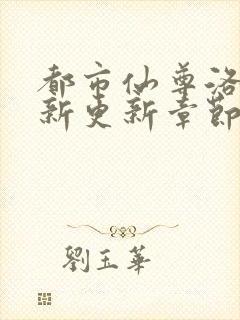 都市仙尊洛
新更新章節
劉玉華